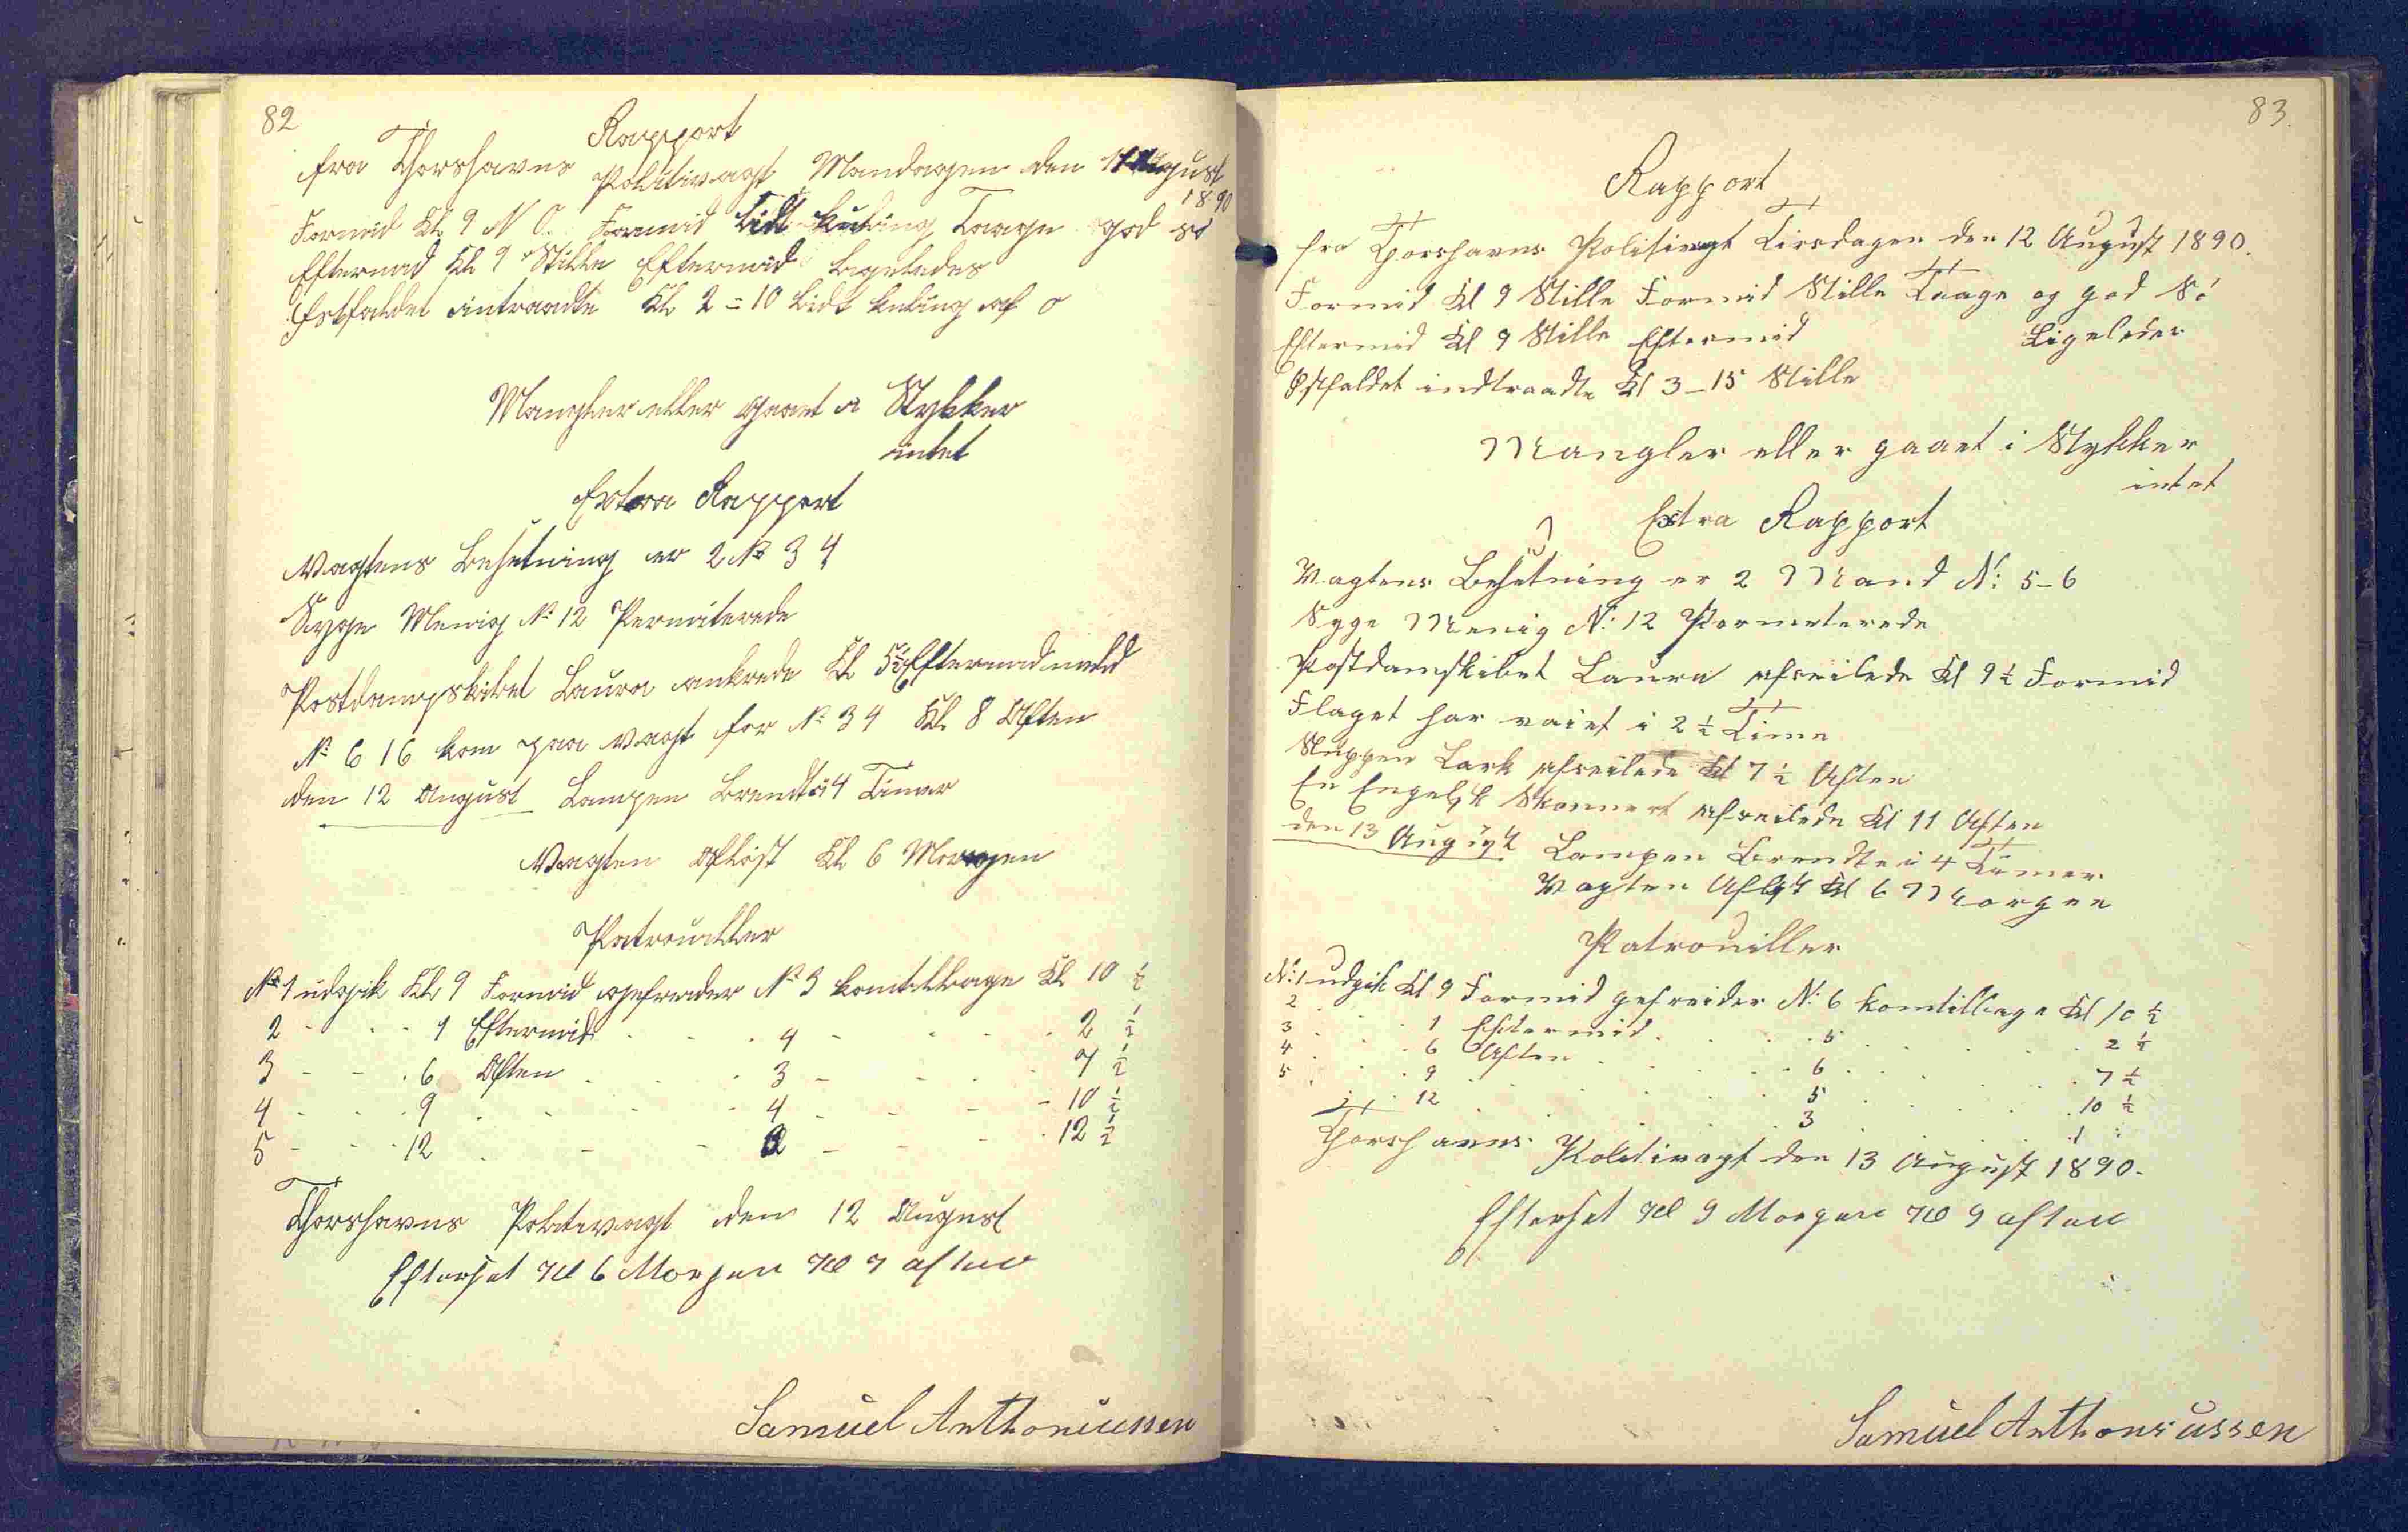 82
Rapport
fra Thorshavns Politivagt Mandagen den 11 August
1890
Formid Kl 9 N O. Formid Lidt kuling Taage god Sö
Eftermid Kl 9 Stille Eftermid Ligeledes
Østfaldet intraadte Kl 2 = 10 Lidt kuling af O
Mangler eller gaaet i Stykker
intet
Extra Rapport
Vagtens Besetning er 2 No 3 4
Syge Menig No 12 Permiterede
Postdampskibet Laura ankrede Kl 5½ Eftermid
No 6 16 kom paa Vagt for No 3 4 Kl 8 Aften
den 12 August Lampen Brendte i 4 Timer
Vagten Afløst Kl 6 Morgen
Patrouiller
No 1 udgik Kl 9 Formid gefreider No 3 kom tilbage Kl 10 ½
2 - - - 1 Eftermid - - 4 - - - 2 ½
3 - - - 6 Aften - - 3 - - - 7 ½
4 - - - 9 - - - 4 - - - 10 ½
5 - - - 12 - - - 2 - - - 12 ½
Thorshavns Politivagt den 12 August
Efterset Kl 6 Morgen Kl 7 aften
Samuel Anthoniussen
83.
Rapport
fra Thorshavns Politivagt Tirsdagen den 12 August 1890.
Formid Kl 9 Stille Formid Stille Taage og god Sö
Eftermid Kl 9 Stille Eftermid Ligeledes
Østfaldet indtraadte Kl 3 - 15 Stille
Mangler eller gaaet i Stykker
intet
Extra Rapport
Vagtens Besetning er 2 Mand No: 5-6
Syge Menig No: 12 Permeterede
Postdamskibet Laura afseilede Kl 9 ½ Formid
Flaget har vaiet i 2 ½ Time
Sluppen Lark afseilede Kl 7 ½ Aften
En Engelsk Skonnert afseilede Kl 11 Aften
den 13 August Lampen Brendte i 4 Timer
Vagten Afløst Kl 6 Morgen
Patrouiller
No: 1 udgik Kl 9 Formid gefreider No: 6 kom tilbage Kl 10 ½
2 . . . 1 Eftermid . . . 5 . . . 2 ½
3 . . . 6 Aften . . . 6 . . . 7 ½
4 . . . 9 . . . 5 . . . 10 ½
5 . . . 12 . . . 3 . . . 1 .
Thorshavns Politivagt den 13 August 1890.
Efterset Kl 9 Morgen Kl 9 aften
Samuel Anthoniussen